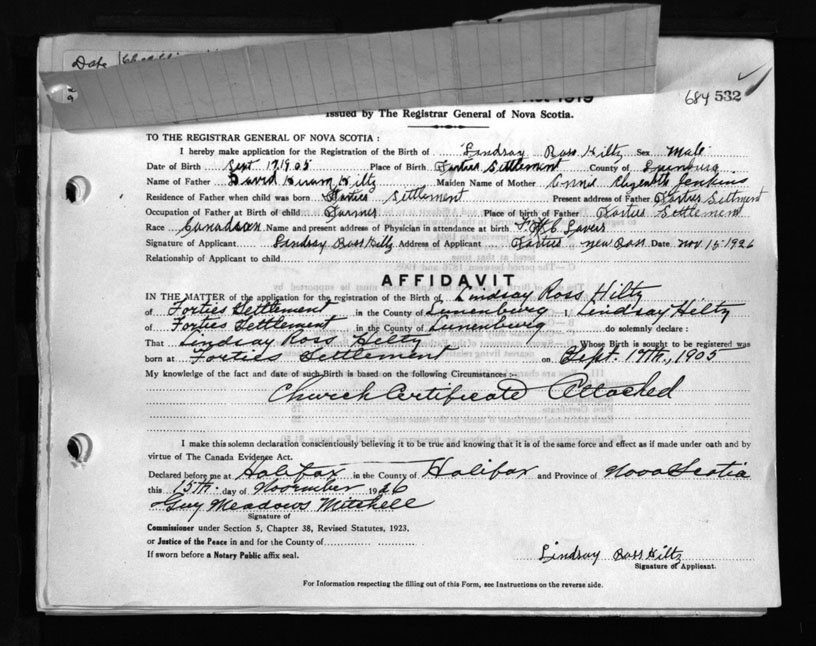 Date
1919
684 532
Issued by The Registrar General of Nova Scotia.
TO THE REGISTRAR GENERAL OF NOVA SCOTIA :
I hereby make application for the Registration of the Birth of Lindsay Ross Hiltz Sex Male
Date of Birth Sept 17, 1905 Place of Birth Forties Settlement County of Lunenburg
Name of Father David Hiram Hiltz Maiden Name of Mother Annie Elizabeth Jenkins
Residence of Father when child was born Forties Settlement Present address of Father Forties Settment
Occupation of Father at Birth of child Farmer Place of birth of Father Forties Settlement
Race Canadian Name and present address of Physician in attendance at birth
Signature of Applicant Lindsay Ross Hiltz Address of Applicant Forties New Ross Date Nov 15 1926
Relationship of Applicant to child
AFFIDAVIT
IN THE MATTER of the application for the registration of the Birth of Lindsay Ross Hiltz
of Forties Settlement in the County of Lunenburg I, Lindsay Hiltz
of Forties Settlement in the County of Lunenburg do solemnly declare :
That Lindsay Ross Hiltz Whose Birth is sought to be registered was
born at Forties Settlement on Sept. 17th, 1905
My knowledge of the fact and date of such Birth is based on the following Circumstances :-
Church Certificate Attached
I make this solemn declaration conscientiously believing it to be true and knowing that it is of the same force and effect as if made under oath and by
virtue of The Canada Evidence Act.
Declared before me at Halifax in the County of Halifax and Province of Nova Scotia
this 15th. day of November 1926
Guy Meadows Mitchell
Signature of
Commissioner under Section 5, Chapter 38, Revised Statutes, 1923,
or Justice of the Peace in and for the County of
If sworn before a Notary Public affix seal.
Lindsay Ross Hiltz
Signature of Applicant.
For Information respecting the filling out of this Form, see Instructions on the reverse side.